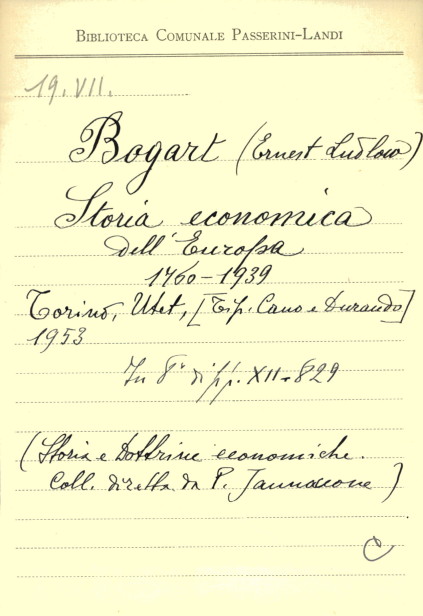 BIBLIOTECA COMUNALE PASSERINI-LANDI
19. VII.
Bogart (Ernest Ludlow)
Storia economica
dell'Europa
1760-1939
Torino, Utet, [Tip. Cano e Durando]
1953
In 8° di pp. XII-829
(Storia e Dottrine economiche.
Coll. diretta da P. Jannaccone)
C